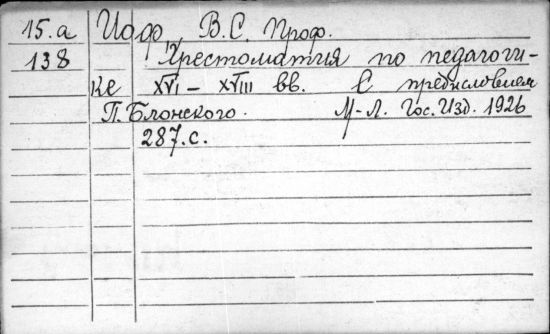 15.а Иоф, В.С. Проф.
138 Хрестоматия по педагоги-
ке XVI – XVIII вв. С предисловием
П. Блонского. М-Л. Гос. Изд. 1926
287.с.